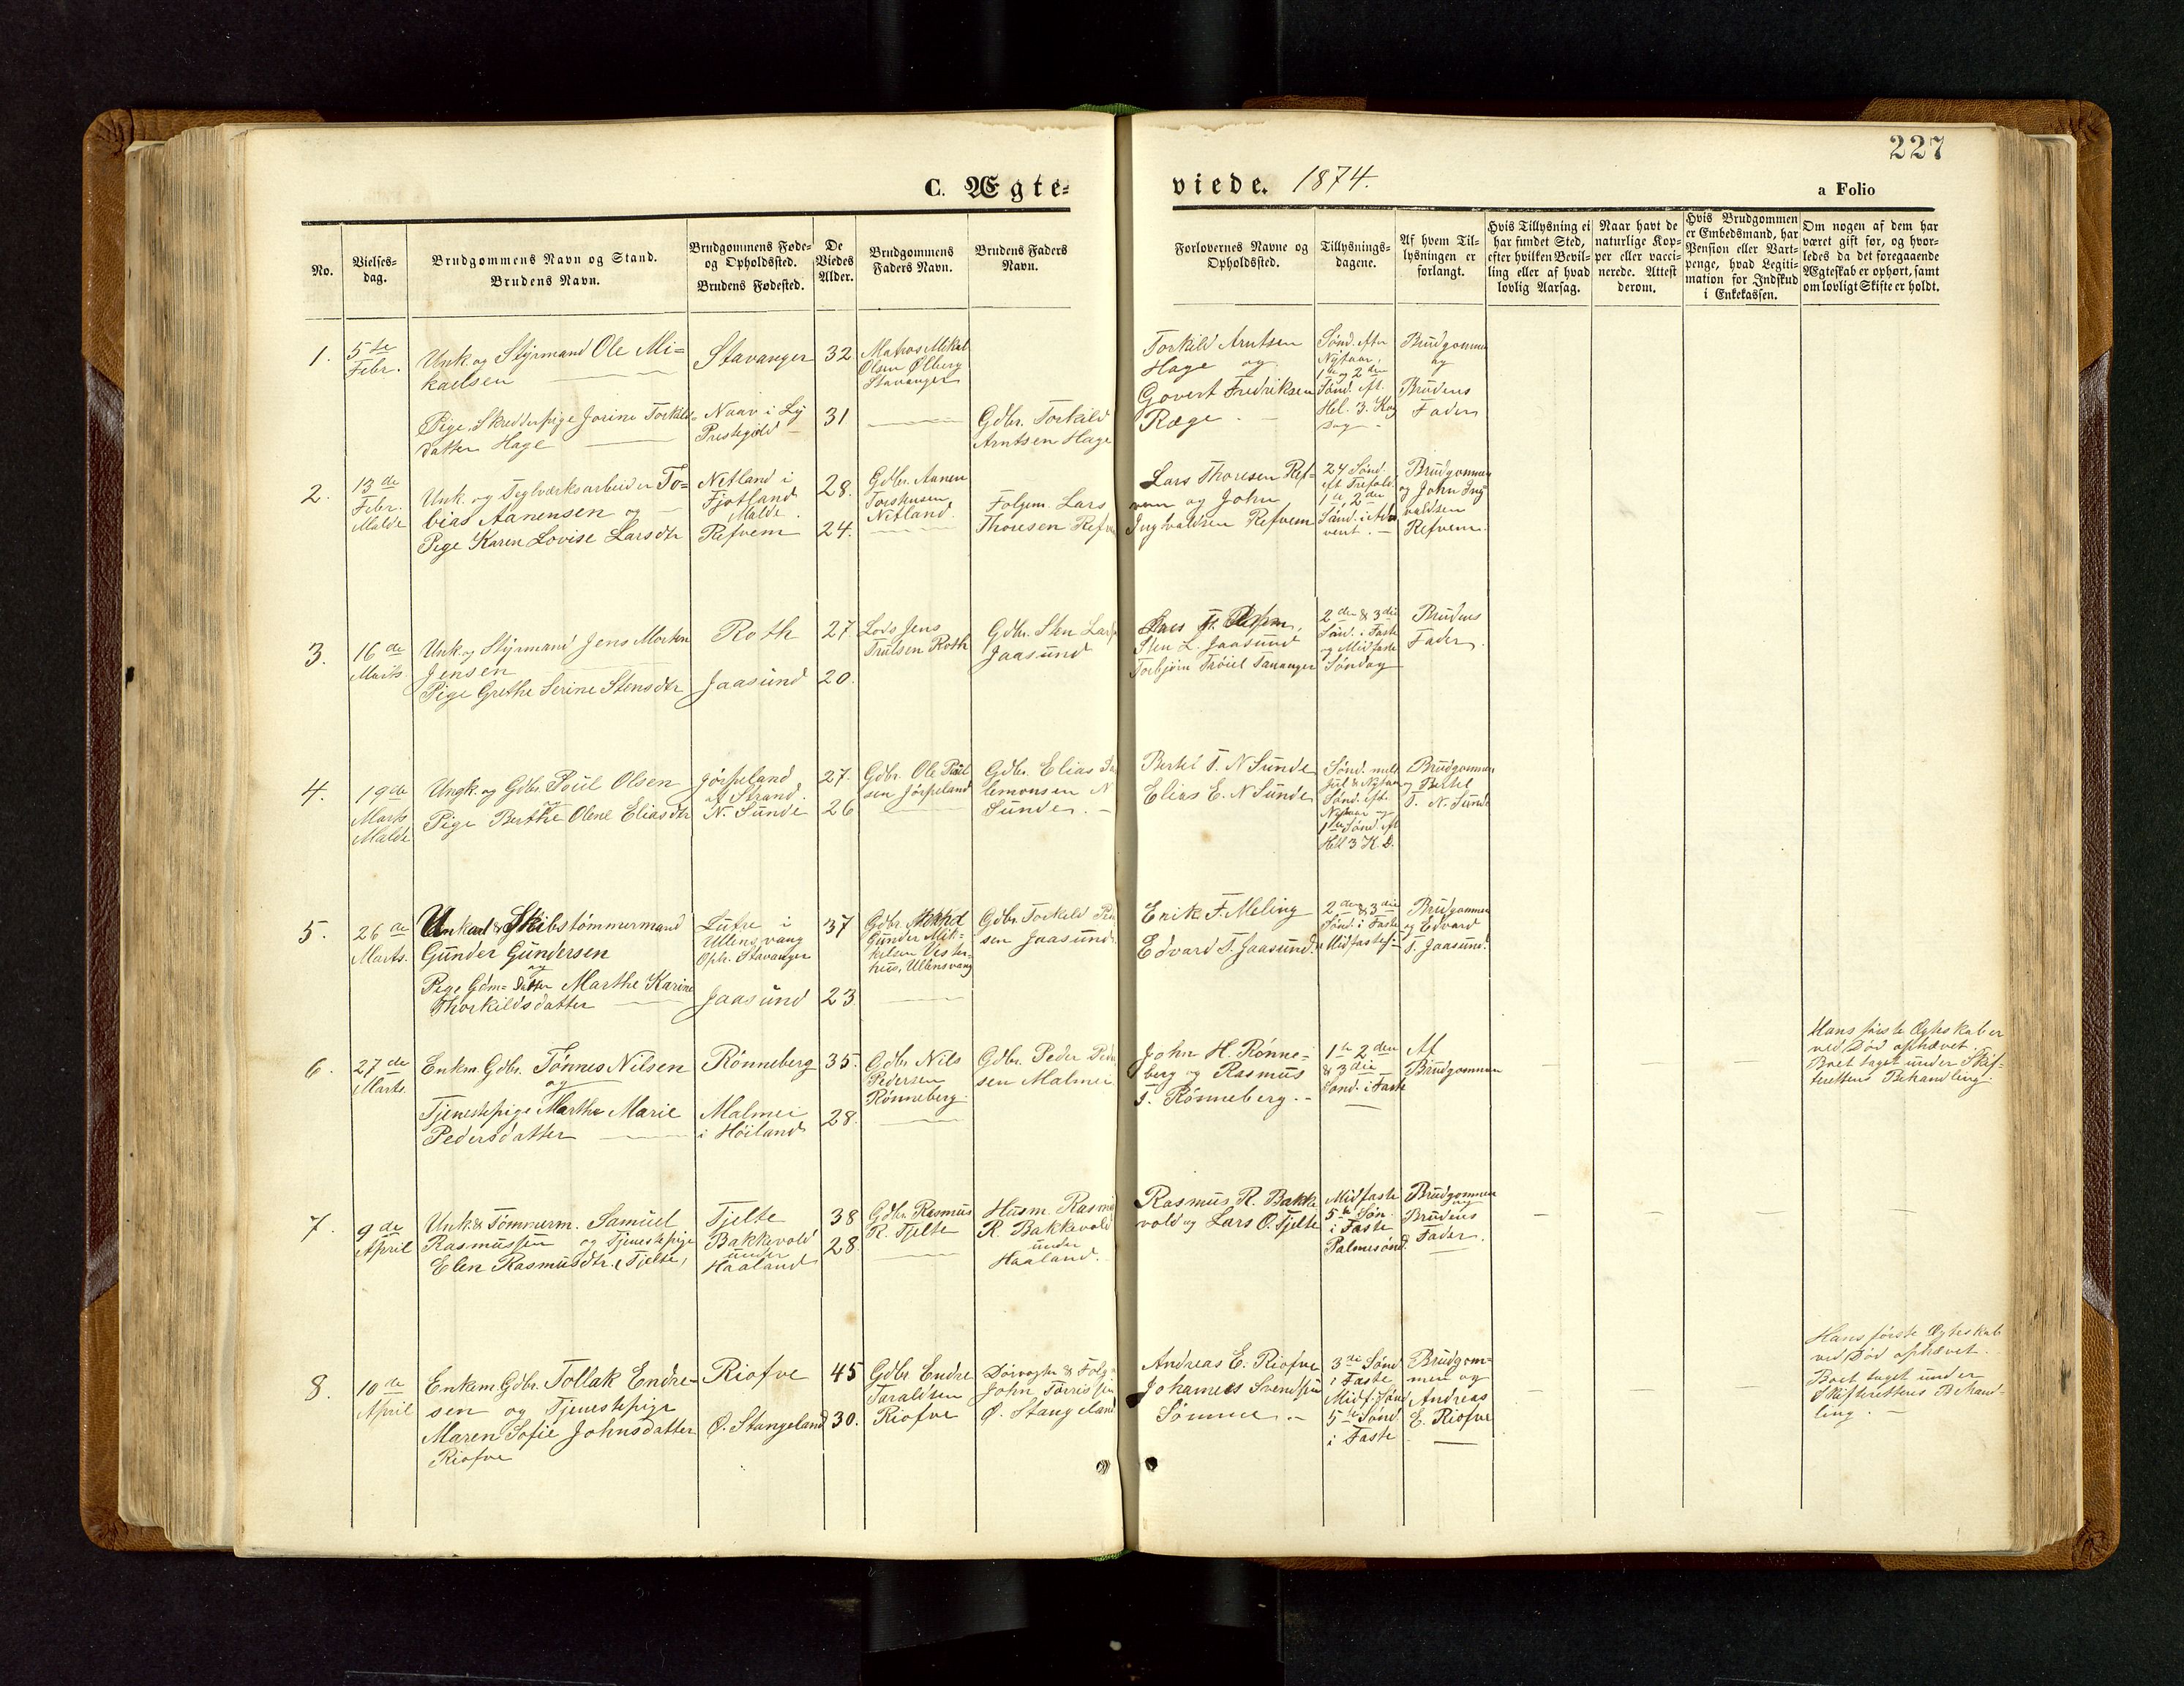 227
C. Ægte-
viede. 1874.
a Folio
No.
Vielses-
dag.
Brudgommens Navn og Stand.
Brudens Navn.
Brudgommens Føde-
og Opholdssted.
Brudens Fødested.
De
Viedes
Alder.
Brudgommens
Faders Navn.
Brudens Faders
Navn.
Forlovernes Navne og
Opholdssted.
Tillysnings-
dagene.
Af hvem Til-
lysningen er
forlangt.
Hvis Tillysning ei
har fundet Sted,
efter hvilken Bevil-
ling eller af hvad
lovlig Aarsag.
Naar havt de
naturlige Kop-
per eller vacci-
nerede. Attest
derom.
Hvis Brudgommen
er Embedsmand, har
Pension eller Vart-
penge, hvad Legiti-
mation for Indskud
i Enkekassen.
Om nogen af dem har
været gift før, og hvor-
ledes da det foregaaende
Ægteskab er ophørt, samt
om lovligt Skifte er holdt.
1.
5te
Febr.
Unk. og Styrmand Ole Mi-
kaelsen
Pige, Skredderpige Jorine Torkilds
datter Hage
Stavanger
Præstegjeld
32
31
Matros Mikal
Olsen Ølberg
Stavanger
Gdbr. Torkild
Arntsen Hage
Torkild Arntsen
Hage og
Govert Fredriksen
Ræge
Sønd. efter
Nytaar,
1ste og 2den
Sønd. eft.
Hel. 3. Kog
dag
Brudgommen
og
Brudens
Fader
2.
13de
Febr.
Malde
Unk. og Teglværksarbeider To-
bias Aanensen og
Pige Karen Lovise Larsdtr
Netland i
Fjotland
Malde
Refvem
28.
24.
Gdbr. Aanen
Netland
Folgem. Lars
Thoresen Refvem
Lars Thoresen Ref-
vem og John
Ingwaldsen Refvem
24 Sønd.
eft Trefold.
1ste, 2den
Sønd. i Ad
vent.
Brudgommen
og John Ing
valdsen
Refvem
3.
16de
Marts
Unk. og Styrmand Jens Morten
Jensen
Pige Grethe Serine Stensdtr
Roth
Jaasund
27
20.
Lods Jens
Trulsen Roth
Gdbr. Sten Lars
Jaasund
Sten L. Jaasund
Torbjørn Trøiel Tananger
2den & 3die
Sønd. i Faste
og Midfaste
Søndag
Brudens
Fader.
4.
19de
Marts
Malde
Ungk. og Gdbr. Poul Olsen
og
Pige Berthe Olene Eliasdtr
Jørpeland
af Strand.
N. Sunde
27.
26
Gdbr. Ole Poul
sen Jørpeland
Gdbr. Elias Sa
lemonsen N
Sunde.
Bertel T. N Sunde
Elias E. N Sunde
Sønd. mell
Jul & Nytaar
Sønd. eft.
Nytaar og
1ste Sønd. eft
Hell 3 K. D.
Brudgommen
og Bertel
T. N. Sunde
5.
26de
Marts.
Unkarl & Skibstømmermand
Gunder Gundersen
og
Pige Gdm= datter Marthe Karine
Thorkildsdatter
Lutre i
Ullensvang
Oph. Stavanger
Jaasund
37
23.
Gdbr.
Gunder Mik-
kelsen Vester-
hus, Ullensvang
Gdbr. Torkeld Ped
sen Jaasund
Erik F. Meling
Edvard T. Jaasund.
2den & 3die
Sønd. i Faste
Midfastes.
Brudgommen
og Edvard
T. Jaasund.
6.
27de
Marts.
Enkm. Gdbr. Tønnes Nilsen
og
Tjenestepige Marthe Marie
Pedersdatter
Rønneberg
Malmei
i Høiland
35.
28.
Gdbr Nils
Pedersen
Rønneberg.
Gdbr. Peder Peder
sen Malmei
John H. Rønne-
berg og Rasmus
T. Rønneberg.
1ste 2den
& 3die
Sønd. i Faste
Af
Brudgommen
Hans første Ægteskab er
ved Død ophævet.
Boet taget under Skif-
terettens Behandling.
7.
9de
April
Unk & Tømmerm. Samuel
Rasmussen og Tjenestepige
Elen Rasmusdtr. i Tjelte,
Tjelte
Bakkevold
under
Haaland
38
28.
Gdbr. Rasmus
R. Tjelte
Husm. Rasmus
R. Bakkevold
under
Haaland.
Rasmus R. Bakke
vold og Lars O. Tjelte
Midfaste
5te Søn.
i Faste
Palmesønd.
Brudgommen
og
Brudens
Fader.
8.
10de
April
Enkem. Gdbr. Tollak Endre-
sen og Tjenestepige
Maren Sofie Johnsdatter
Riofve
Riofve
Ø. Stangeland
45
30.
Gdbr Endre
Taraldsen
Riofve
John Tørrissen
Ø. Stangeland
Andreas E. Riofve
Johannes Svendsen
Sømme
3die Sønd
i Faste
Midf. Sønd
5te Sønd.
i Faste
Brudgom-
men og
Andreas
E. Riofve
Hans første Ægteskab
ved Død ophævet.
Boet taget under
Skifterettens Behand-
ling.